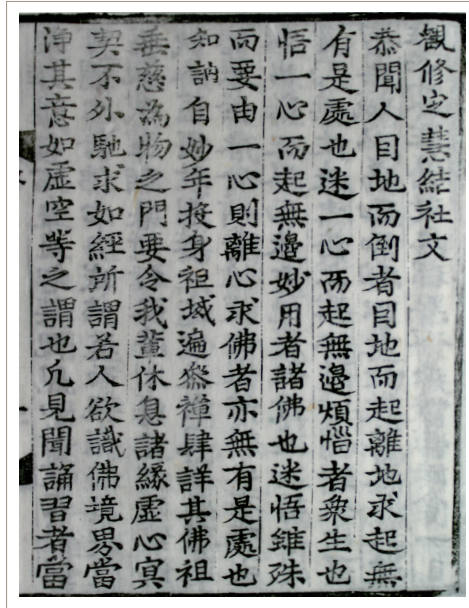 勸修定慧結社文
恭聞人因地而倒者因地而起離地求起無
有是處也迷一心而起無邊煩惱者衆生也
悟一心而起無邊妙用者諸佛也迷悟雖殊
而要由一心則離心求佛者亦無有是處也
知訥自妙年投身祖域遍叅禪肆詳其佛祖
垂慈爲物之門要令我輩休息諸緣虛心冥
契不外馳求如經所謂若人欲識佛境界當
淨其意如虛空等之謂也凡見聞誦習者當